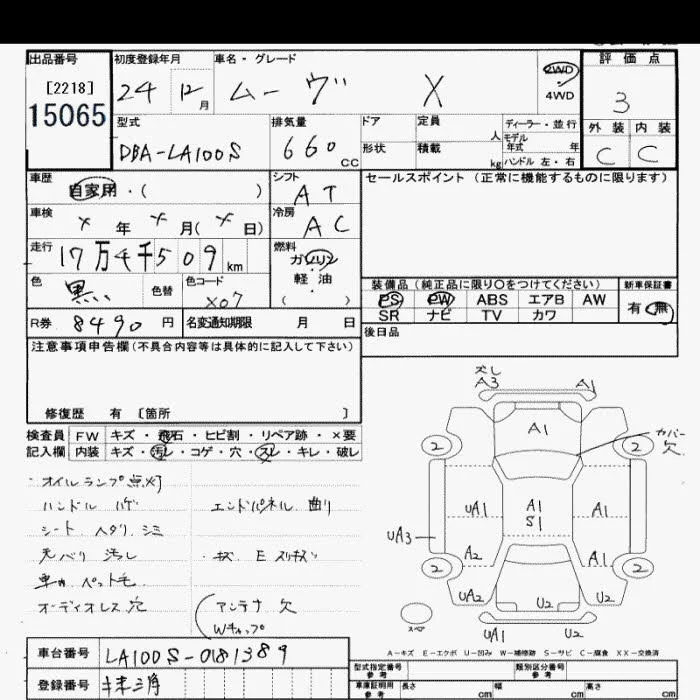 出品番号 初度登録年月 車名・グレード 評価点
[2218] 24 12月 ムーヴ X 2WD 4WD 3
15065
型式 排気量 ドア 定員 人 ディーラー・並行 外装 内装
DBA-LA100S 660 CC 形状 積載 kg モデル年式 年 ハンドル 左・右 C C
車歴 自家用・( ) シフト AT セールスポイント (正常に機能するものに限ります)
車検 × 年 × 月( × 日) 冷房 AC
走行 17万4千509 km 燃料 ガソリン・軽油・( )
色 黒 色替 色コード X07
装備品 (純正品に限り○をつけてください) 新車保証書
PS PW ABS エアB AW 有・無
SR ナビ TV カワ
R券 8490 円 名変通知期限 月 日
後日品
注意事項申告欄 (不具合内容等は具体的に記入して下さい)
修復歴 有 [箇所 ]
検査員 FW キズ・飛石・ヒビ割・リペア跡・×要
記入欄 内装 キズ・汚レ・コゲ・穴・スレ・キレ・破レ
・オイルランプ点灯
ハンドル ハゲ エンドパネル 曲り
シート ヘタリ シミ
天バリ 汚レ
車内 ペット毛
オーディオレス 穴 アンテナ 欠
Wキャップ
ズレ
A3 A1
A1
カバー欠
2 2
UA1 A1 S1 A1
UA3
A2 A1
2 2
UA2 U2 U2
スペア
UA1 U2
A-キズ E-エクボ U-凹み W-補修跡 S-サビ C-腐食 XX-交換済
車台番号 LA100S-0181389
型式指定番号 参考 類別区分番号 参考
登録番号
車庫証明用 参考 長さ cm 幅 cm 高さ cm